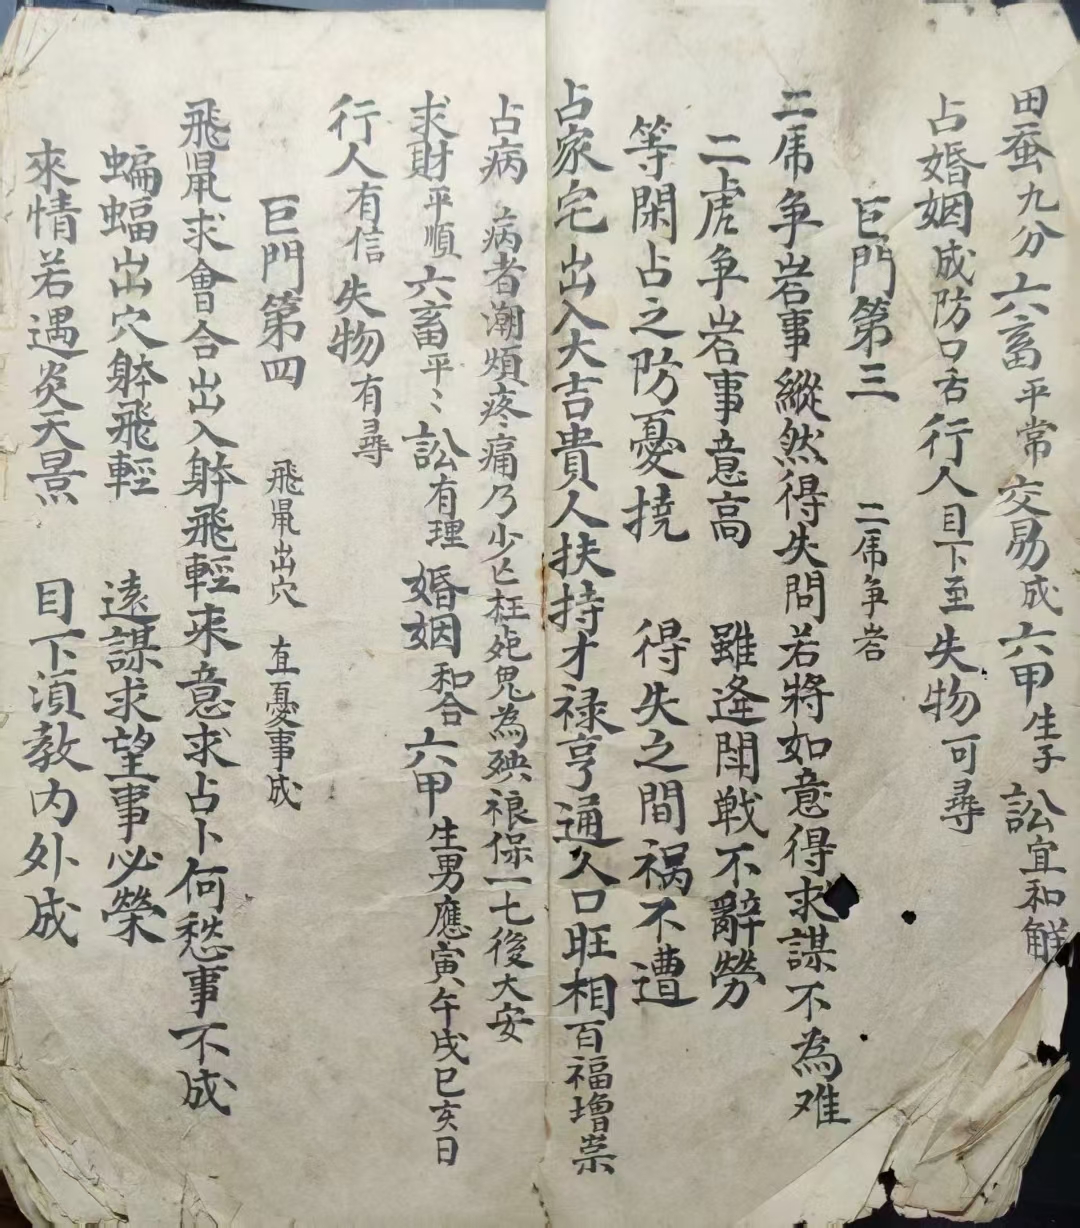 田蚕九分六畜平常交易成六甲生子訟宜和解
占婚姻成防口舌行人目下至失物可尋
巨門第三 二虎争岩
二虎争岩事縱然得失問若將如意得求謀不為难
二虎争岩事意高 雖逢閗戦不辭勞
等閑占之防憂撓 得失之間祸不遭
占家宅出入大吉貴人扶持才禄亨通人口旺相百福增崇
占病 病者潮煩疼痛乃少亡枉死鬼為殃禳保一七後大安
求財平順六畜平〻訟有理 婚姻和合六甲生男應寅午戌巳亥日
行人有信失物有尋
巨門第四 飛鼠出穴 直憂事成
飛鼠求會合出入躰飛輕来意求占卜何愁事不成
蝙蝠出穴躰飛輕 遠謀求望事必榮
來情若遇炎天景 目下湏教内外成